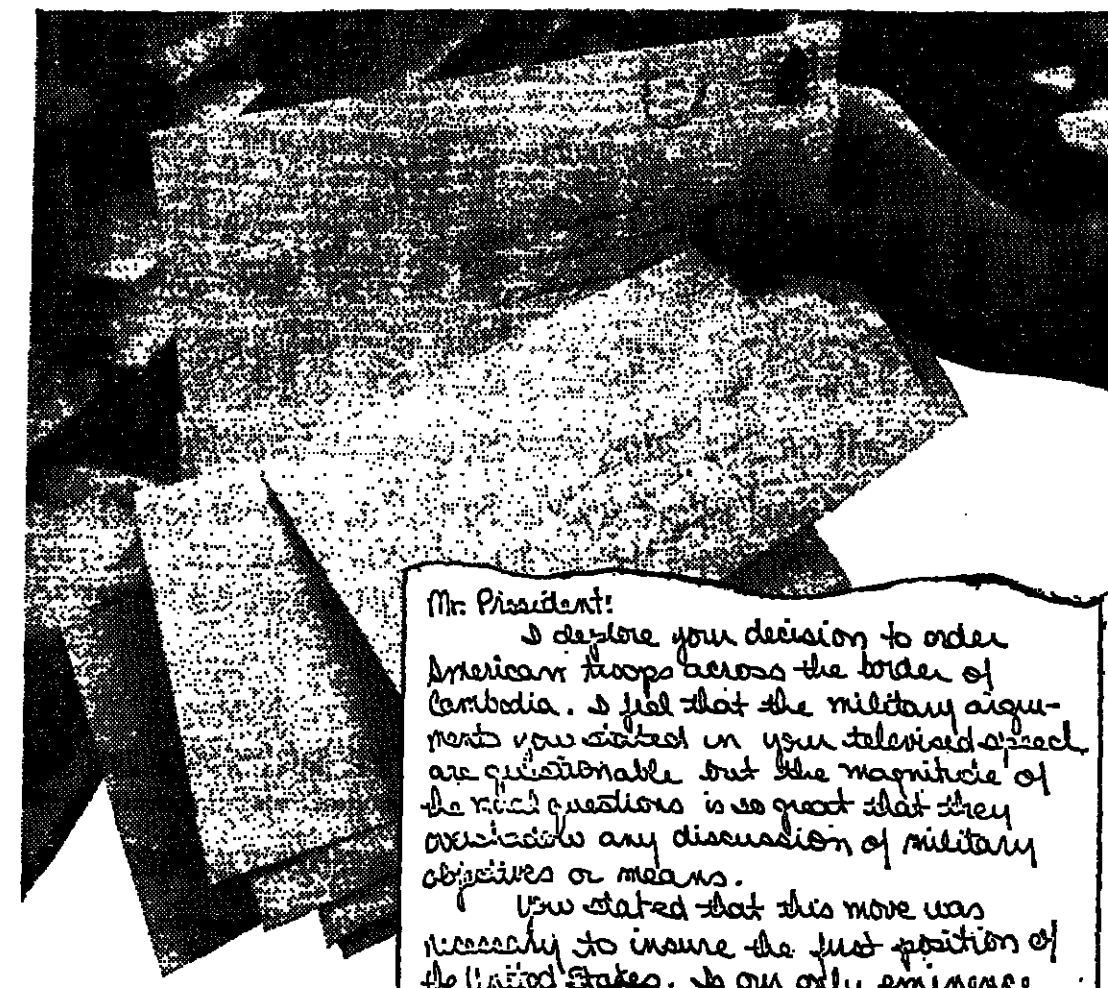 Mr. President:
I deplore your decision to order
American troops across the border of
Cambodia. I feel that the military argu-
ments you stated in your televised speech
are questionable but the magnitude of
the questions is so great that they
overshadow any discussion of military
objectives or means.
You stated that this move was
necessary to insure the just position of
the United States. Is our only eminence